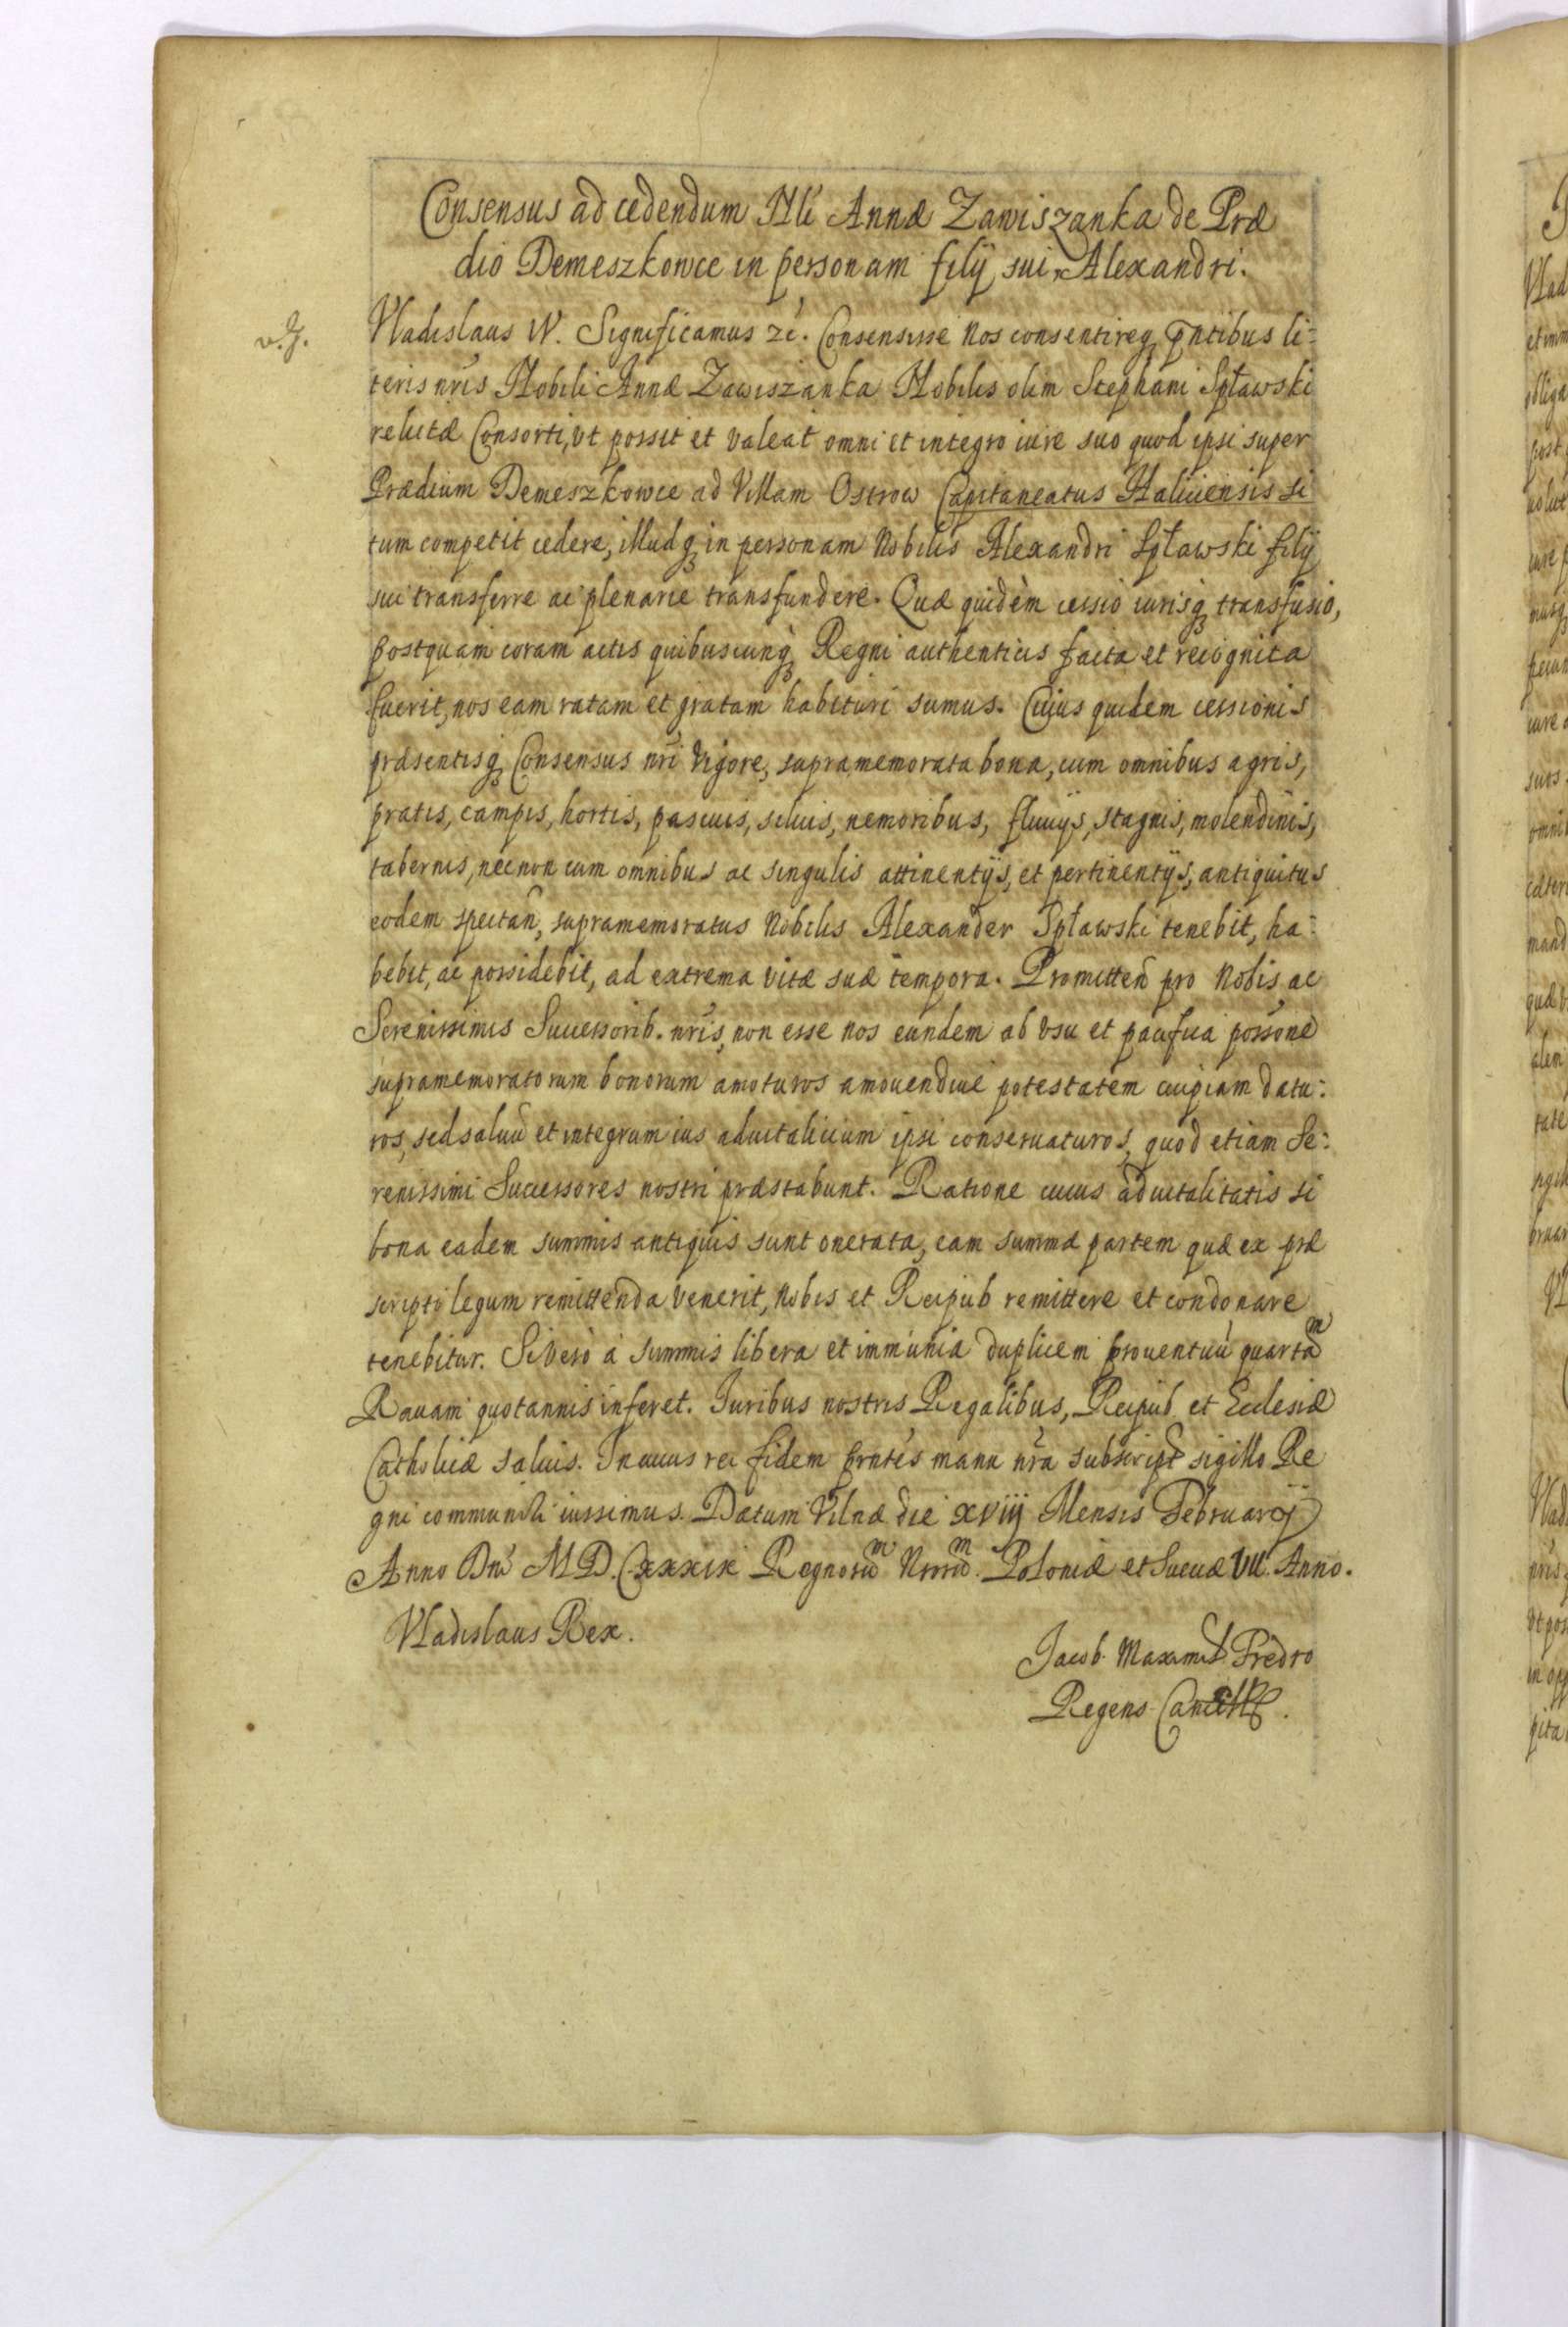 Consensus ad cedendum Nli Annæ Zawiszanka de Præ
dio Demeszkowce in personam filij sui Alexandri.
Vladislaus IV. Significamus &c. Consensisse nos consentireq pntibus li=
teris nris Nobili Annæ Zawiszanka Nobilis olim Stephani Spławski
relictæ Consorti, vt possit et valeat omni et integro iure suo quod ipsi super
Prædium Demeszkowce ad Villam Ostrow Capitaneatus Haliciensis si
tum competit cedere, illudq in personam Nobilis Alexandri Spławski filij
sui transferre ac plenarie transfundere. Quæ quidem cessio iurisq transfusio,
postquam coram actis quibuscunq Regni authenticis facta et recognita
fuerit, nos eam ratam et gratam habituri sumus. Cuius quidem cessionis
præsentisq Consensus nri vigore, supramemorata bona, cum omnibus agris,
pratis, campis, hortis, pascuis, siluis, nemoribus, fluuijs, stagnis, molendinis,
tabernis, necnon cum omnibus ac singulis attinentijs, et pertinentijs, antiquitus
eodem spectan, supramemoratus Nobilis Alexander Spławski tenebit, ha=
bebit, ac possidebit, ad extrema vitæ suæ tempora. Promitten pro Nobis ac
Serenissimis Successorib. nris, non esse nos eundem ab vsu et pacifica possone
supramemoratorum bonorum amoturos amouendiue potestatem cuipiam datu=
ros, sed saluu et integrum ius aduitalicium ipsi conseruaturos, quod etiam Se=
renissimi Successores nostri præstabunt. Ratione cuius aduitalitatis si
bona eadem summis antiquis sunt onerata, eam summæ partem quæ ex præ
scripto legum remittenda venerit, Nobis et Reipub remittere et condonare
tenebitur. Si vero à summis libera et immunia duplicem prouentuu quartam
Rauam quotannis inferet. Iuribus nostris Regalibus, Reipub et Ecclesiæ
Catholicæ saluis. In cuius rei fidem prntes manu nra subscript sigillo Re
gni communiri iussimus. Datum Vilnæ die XVIII Mensis Februarij
Anno Dni M D. C xxxix Regnorum Nrorum. Poloniæ et Sueciæ VII. Anno.
Vladislaus Rex.
Jacob Maximil Fredro
Regens Cancell.